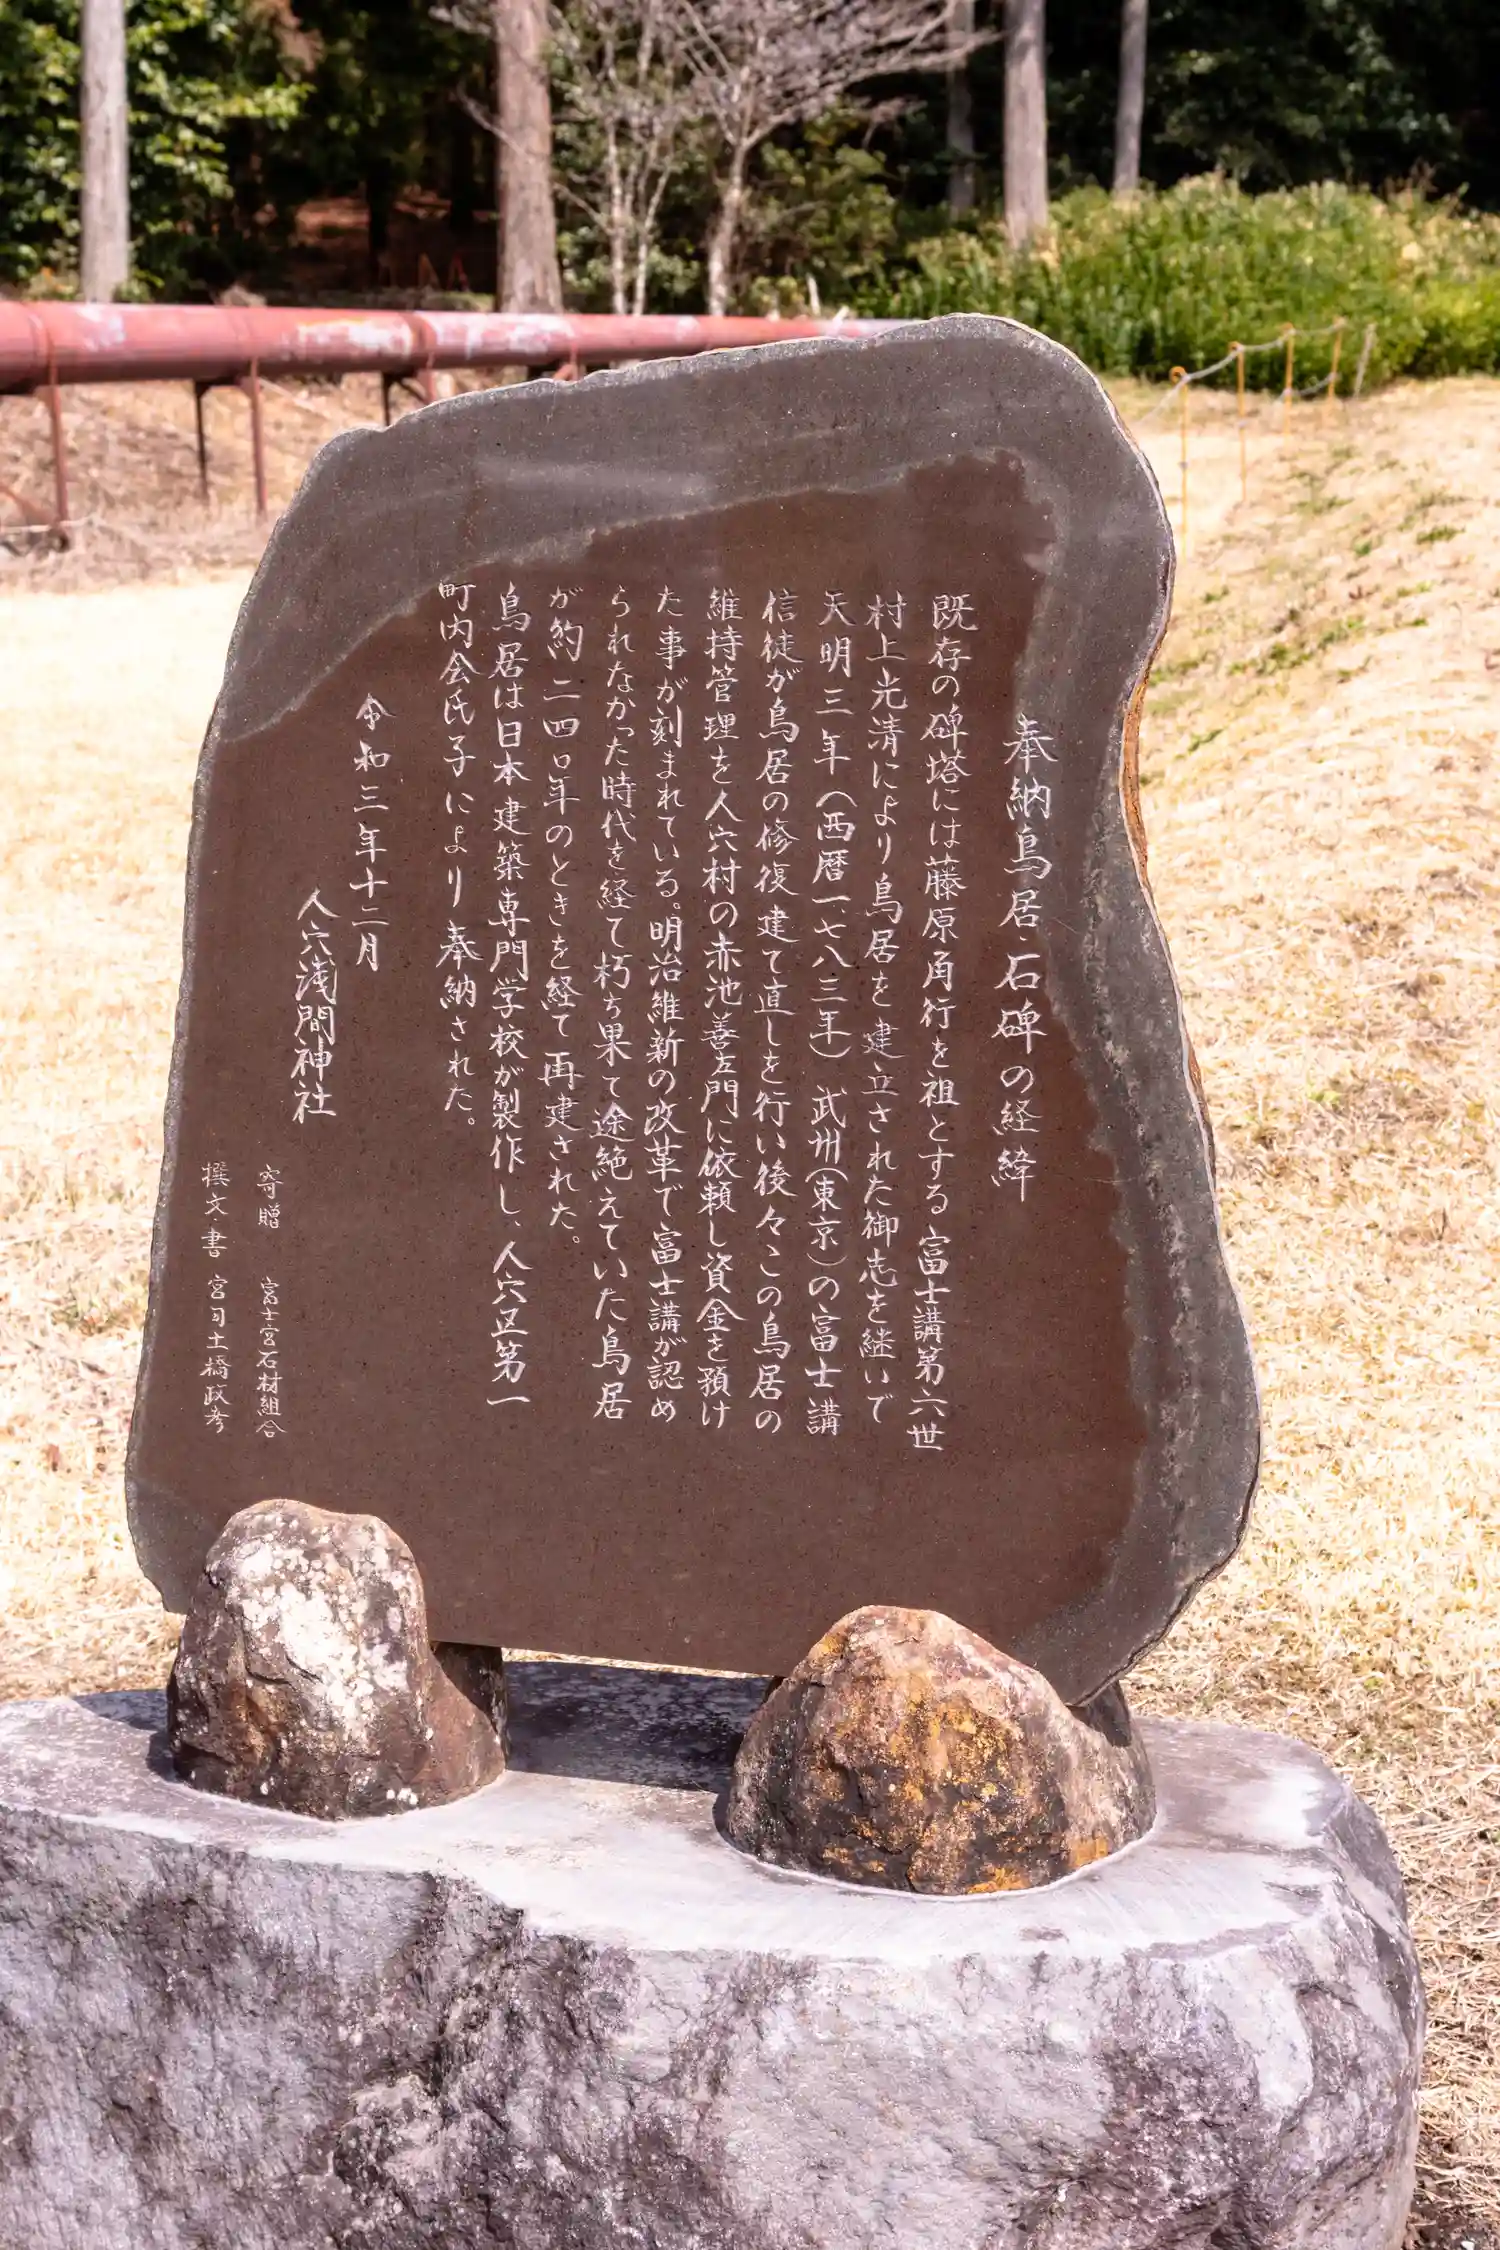 奉納鳥居・石碑の経緯
既存の碑塔には藤原角行を祖とする富士講第六世
村上光清により鳥居を建立された御志を継いで
天明三年(西暦一七八三年)武州(東京)の富士講
信徒が鳥居の修復建て直しを行い後々この鳥居の
維持管理を人穴村の赤池善左門に依頼し資金を預け
た事が刻まれている。明治維新の改革で富士講が認め
られなかった時代を経て朽ち果て途絶えていた鳥居
が約二四〇年のときを経て再建された。
鳥居は日本建築専門学校が製作し、人穴区第一
町内会氏子により奉納された。
令和三年十二月
人穴浅間神社
寄贈 富士宮石材組合
撰文・書 宮司土橋政孝